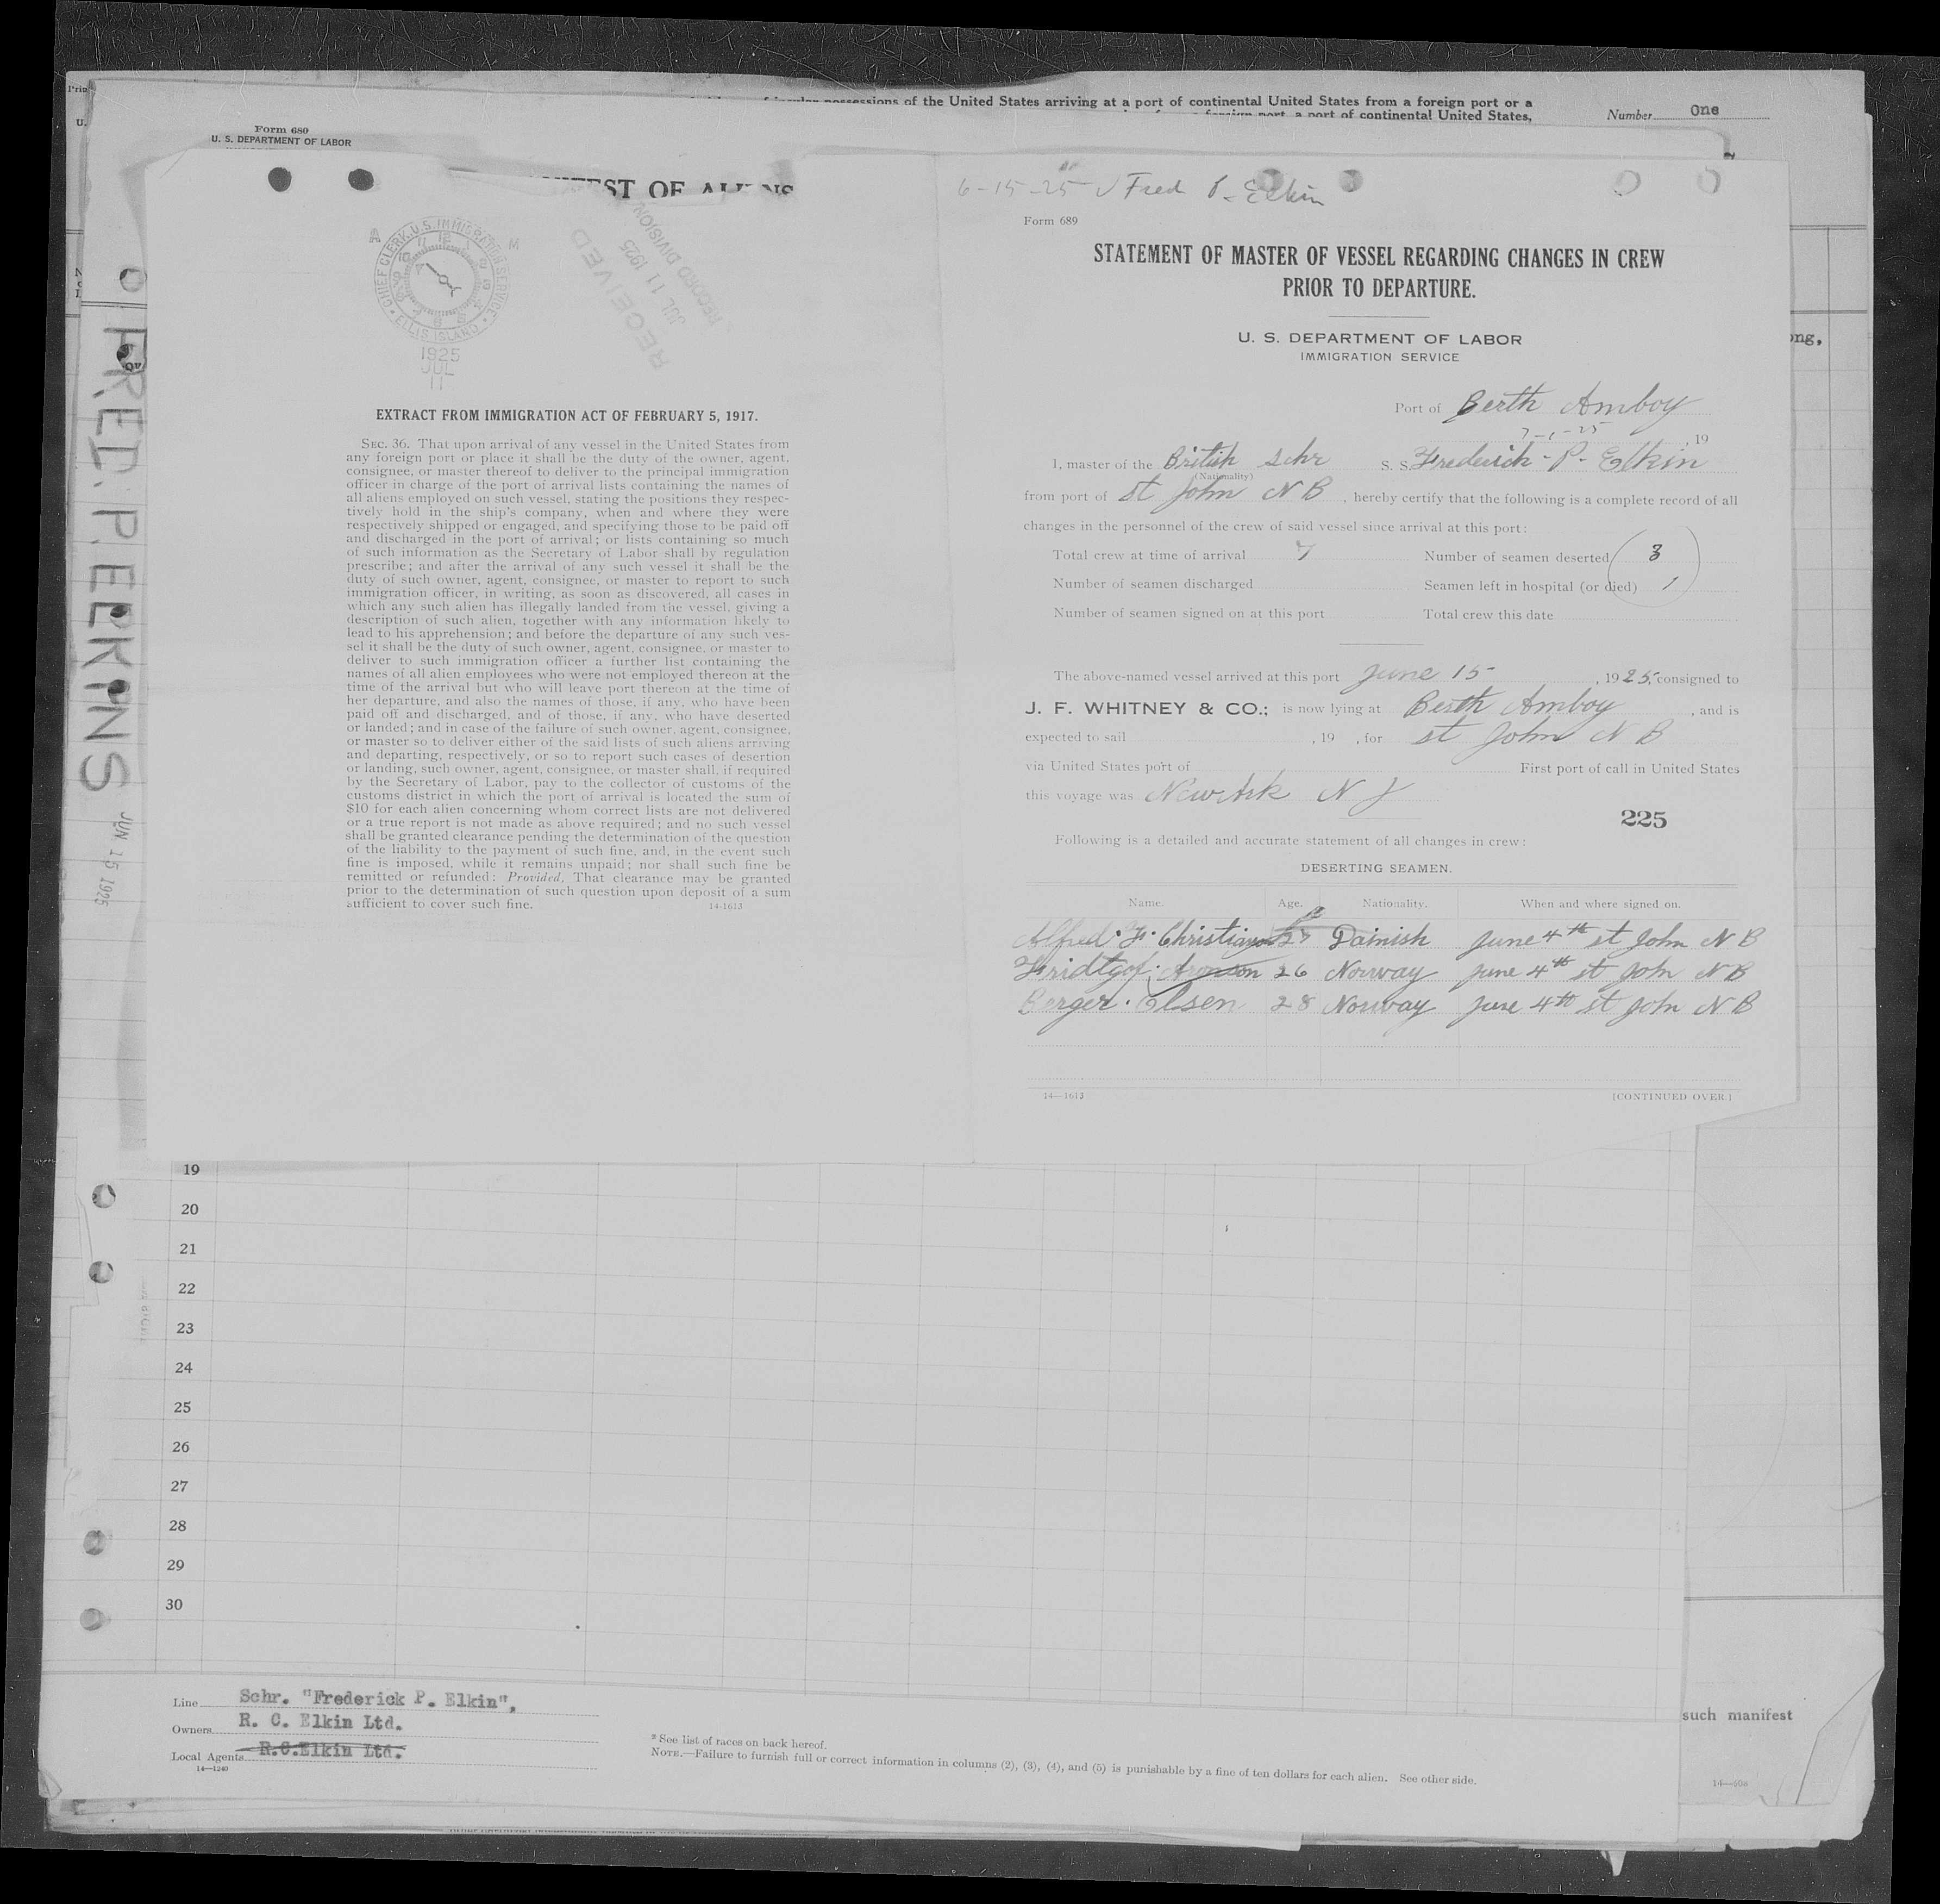 possessions of the United States arriving at a port of continental United States from a foreign port or a
a port of continental United States,
Number One
Form 680
U. S. DEPARTMENT OF LABOR
EST OF ALIENS
CHIEF CLERK, U.S. IMMIGRATION SERVICE
ELLIS ISLAND
1925
JUL
11
RECEIVED
JUL 11 1925
RECORD DIVISION
FRED. P. ELKINS
JUN 15 1925
EXTRACT FROM IMMIGRATION ACT OF FEBRUARY 5, 1917.
SEC. 36. That upon arrival of any vessel in the United States from
any foreign port or place it shall be the duty of the owner, agent,
consignee, or master thereof to deliver to the principal immigration
officer in charge of the port of arrival lists containing the names of
all aliens employed on such vessel, stating the positions they respec-
tively hold in the ship's company, when and where they were
respectively shipped or engaged, and specifying those to be paid off
and discharged in the port of arrival; or lists containing so much
of such information as the Secretary of Labor shall by regulation
prescribe; and after the arrival of any such vessel it shall be the
duty of such owner, agent, consignee, or master to report to such
immigration officer, in writing, as soon as discovered, all cases in
which any such alien has illegally landed from the vessel, giving a
description of such alien, together with any information likely to
lead to his apprehension; and before the departure of any such ves-
sel it shall be the duty of such owner, agent, consignee, or master to
deliver to such immigration officer a further list containing the
names of all alien employees who were not employed thereon at the
time of the arrival but who will leave port thereon at the time of
her departure, and also the names of those, if any, who have been
paid off and discharged, and of those, if any, who have deserted
or landed; and in case of the failure of such owner, agent, consignee,
or master so to deliver either of the said lists of such aliens arriving
and departing, respectively, or so to report such cases of desertion
or landing, such owner, agent, consignee, or master shall, if required
by the Secretary of Labor, pay to the collector of customs of the
customs district in which the port of arrival is located the sum of
$10 for each alien concerning whom correct lists are not delivered
or a true report is not made as above required; and no such vessel
shall be granted clearance pending the determination of the question
of the liability to the payment of such fine, and, in the event such
fine is imposed, while it remains unpaid; nor shall such fine be
remitted or refunded: Provided, That clearance may be granted
prior to the determination of such question upon deposit of a sum
sufficient to cover such fine.
14-1613
6-15-25 ✓ Fred P. Elkin
Form 689
STATEMENT OF MASTER OF VESSEL REGARDING CHANGES IN CREW
PRIOR TO DEPARTURE.
U. S. DEPARTMENT OF LABOR
IMMIGRATION SERVICE
Port of Perth Amboy
7-1-25, 19
I, master of the British Schr S. S. Frederick-P-Elkin
(Nationality)
from port of St John N B, hereby certify that the following is a complete record of all
changes in the personnel of the crew of said vessel since arrival at this port:
Total crew at time of arrival 7 Number of seamen deserted 3
Number of seamen discharged Seamen left in hospital (or died) 1
Number of seamen signed on at this port Total crew this date
The above-named vessel arrived at this port June 15, 1925, consigned to
J. F. WHITNEY & CO.; is now lying at Perth Amboy, and is
expected to sail , 19 , for St John N B
via United States port of First port of call in United States
this voyage was NewArk N J
225
Following is a detailed and accurate statement of all changes in crew:
DESERTING SEAMEN.
Name. Age. Nationality. When and where signed on.
Alfred. F. Christianson 27 Dainish June 4th St John N B
Fridtgof. Aronson 26 Norway June 4th St John N B
Berger. Olsen 28 Norway June 4th St John N B
14—1613 [CONTINUED OVER.]
ong,
19
20
21
22
23
24
25
26
27
28
29
30
Line Schr. "Frederick P. Elkin",
Owners R. C. Elkin Ltd.
Local Agents R.C.Elkin Ltd.
14—1240
* See list of races on back hereof.
NOTE.—Failure to furnish full or correct information in columns (2), (3), (4), and (5) is punishable by a fine of ten dollars for each alien. See other side.
such manifest
14—608